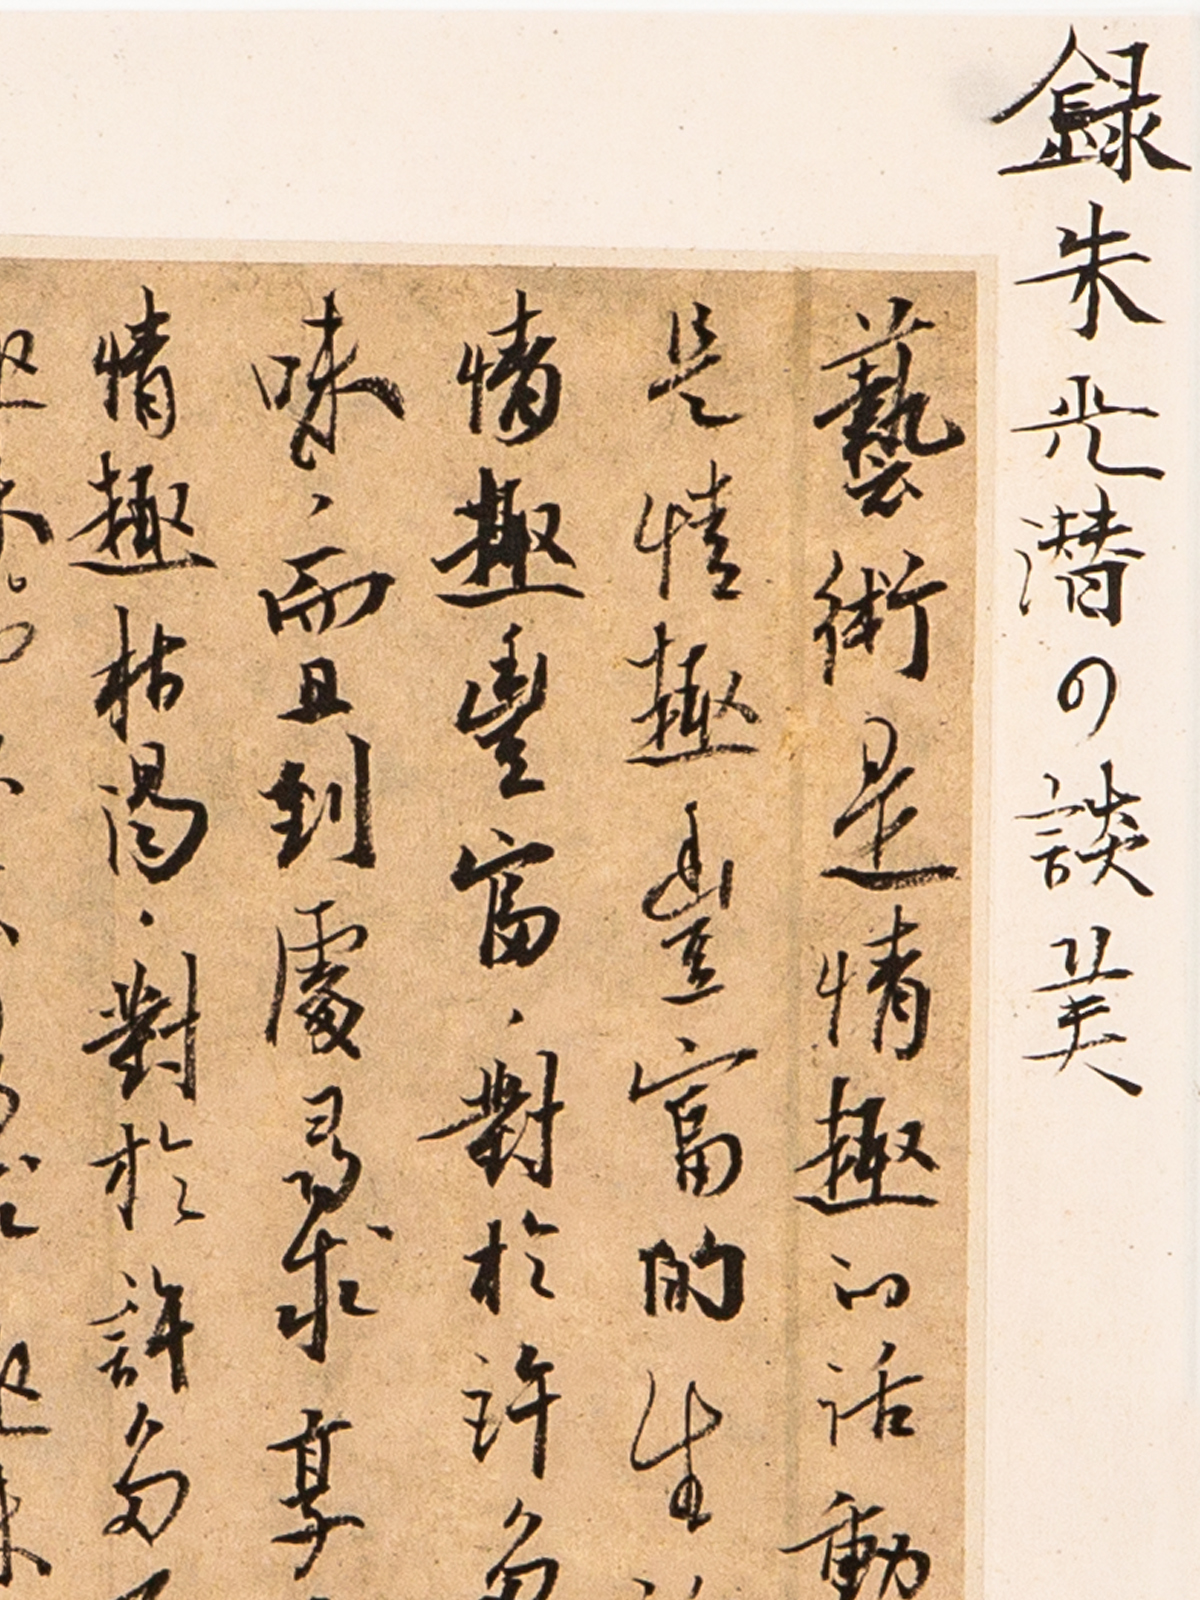 録朱光潜の談美
藝術是情趣的活動
是情趣豐富的生
情趣豐富，對於許多
味，而且到處尋求享
情趣枯渴，對於許多